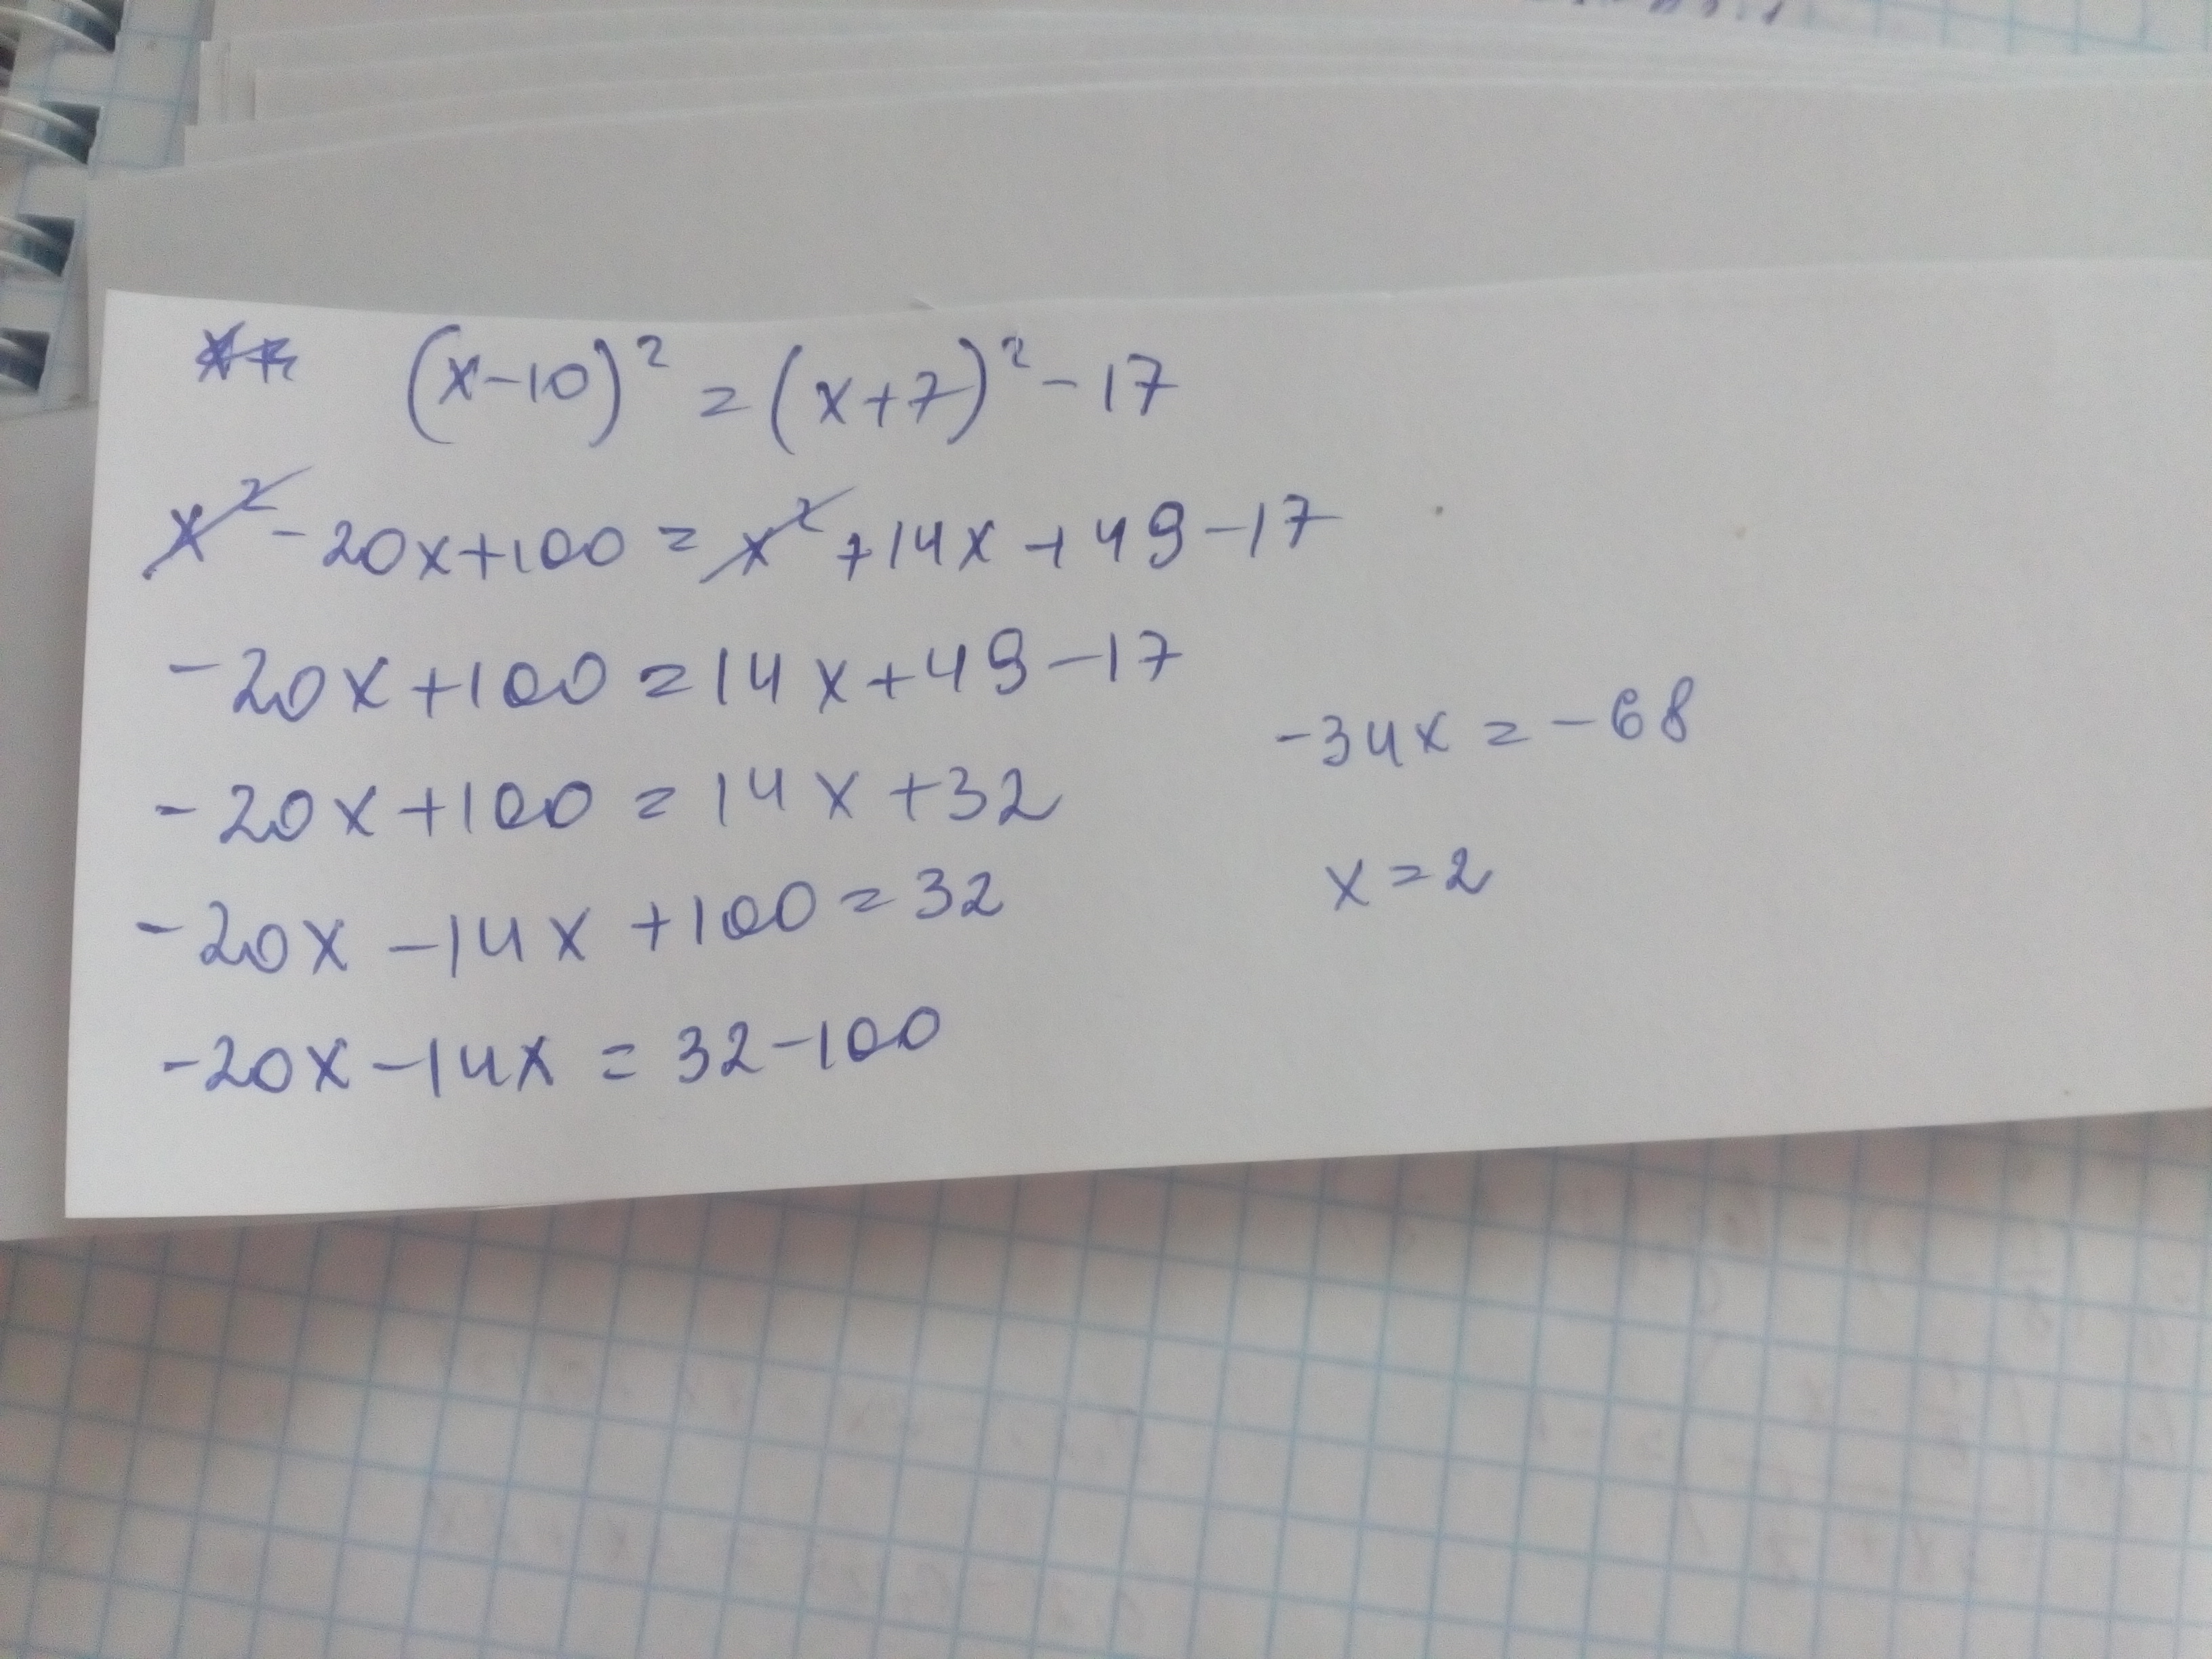 (x-10)² = (x+7)² - 17
x² - 20x+100 = x² +14x +49-17
-20x+100 = 14x+49-17
-20x+100 = 14x+32
-20x -14x +100=32
-20x-14x = 32-100
-34x = -68
x=2